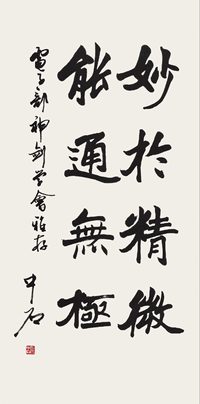 妙於精微
能通無極
電子部神劍学會雅存
中石